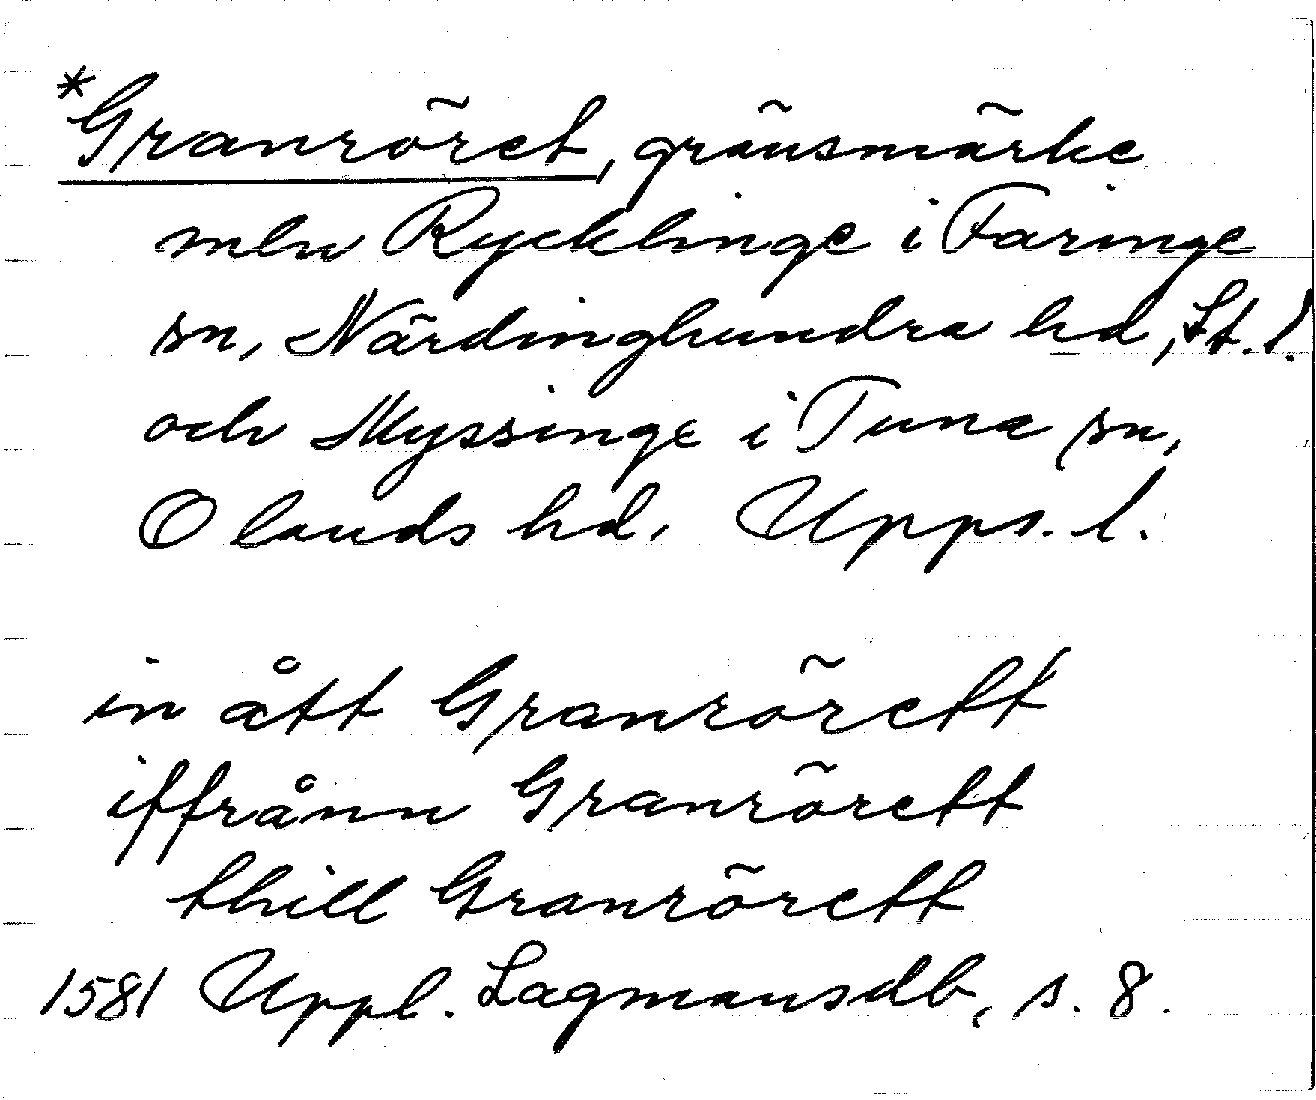 *Granröret, gränsmärke
mln Rycklinge i Faringe
sn, Närdinghundra hd, St. l.
och Myssinge i Tuna sn,
Olands hd, Upps. l.
in ått Granrörett
iffrånn Granrörett
thill Granrörett
1581 Uppl. Lagmansdb, s. 8.